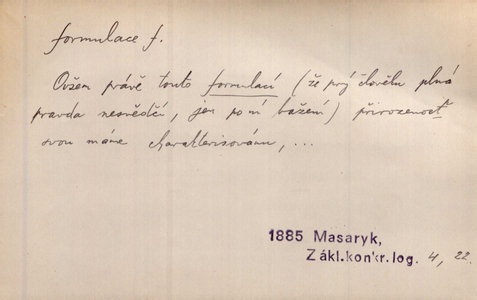 formulace f.
Ovšem právě touto formulací (že prý člověku plná
pravda nesvědčí, jen po ní bažení) přirozenost
svou máme charakterisovánu, ...
1885 Masaryk,
Zákl.konkr.log. 4, 22.